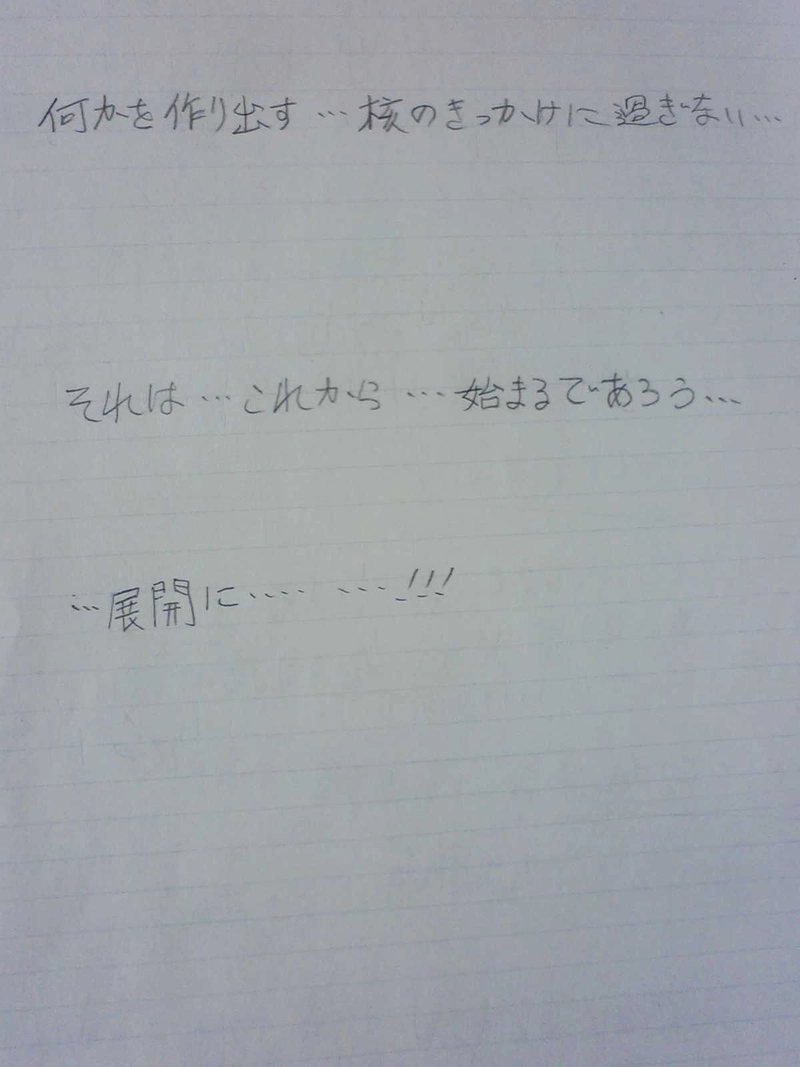 何かを作り出す…核のきっかけに過ぎない…
それは…これから…始まるであろう…
…展開に‥‥ …!!!